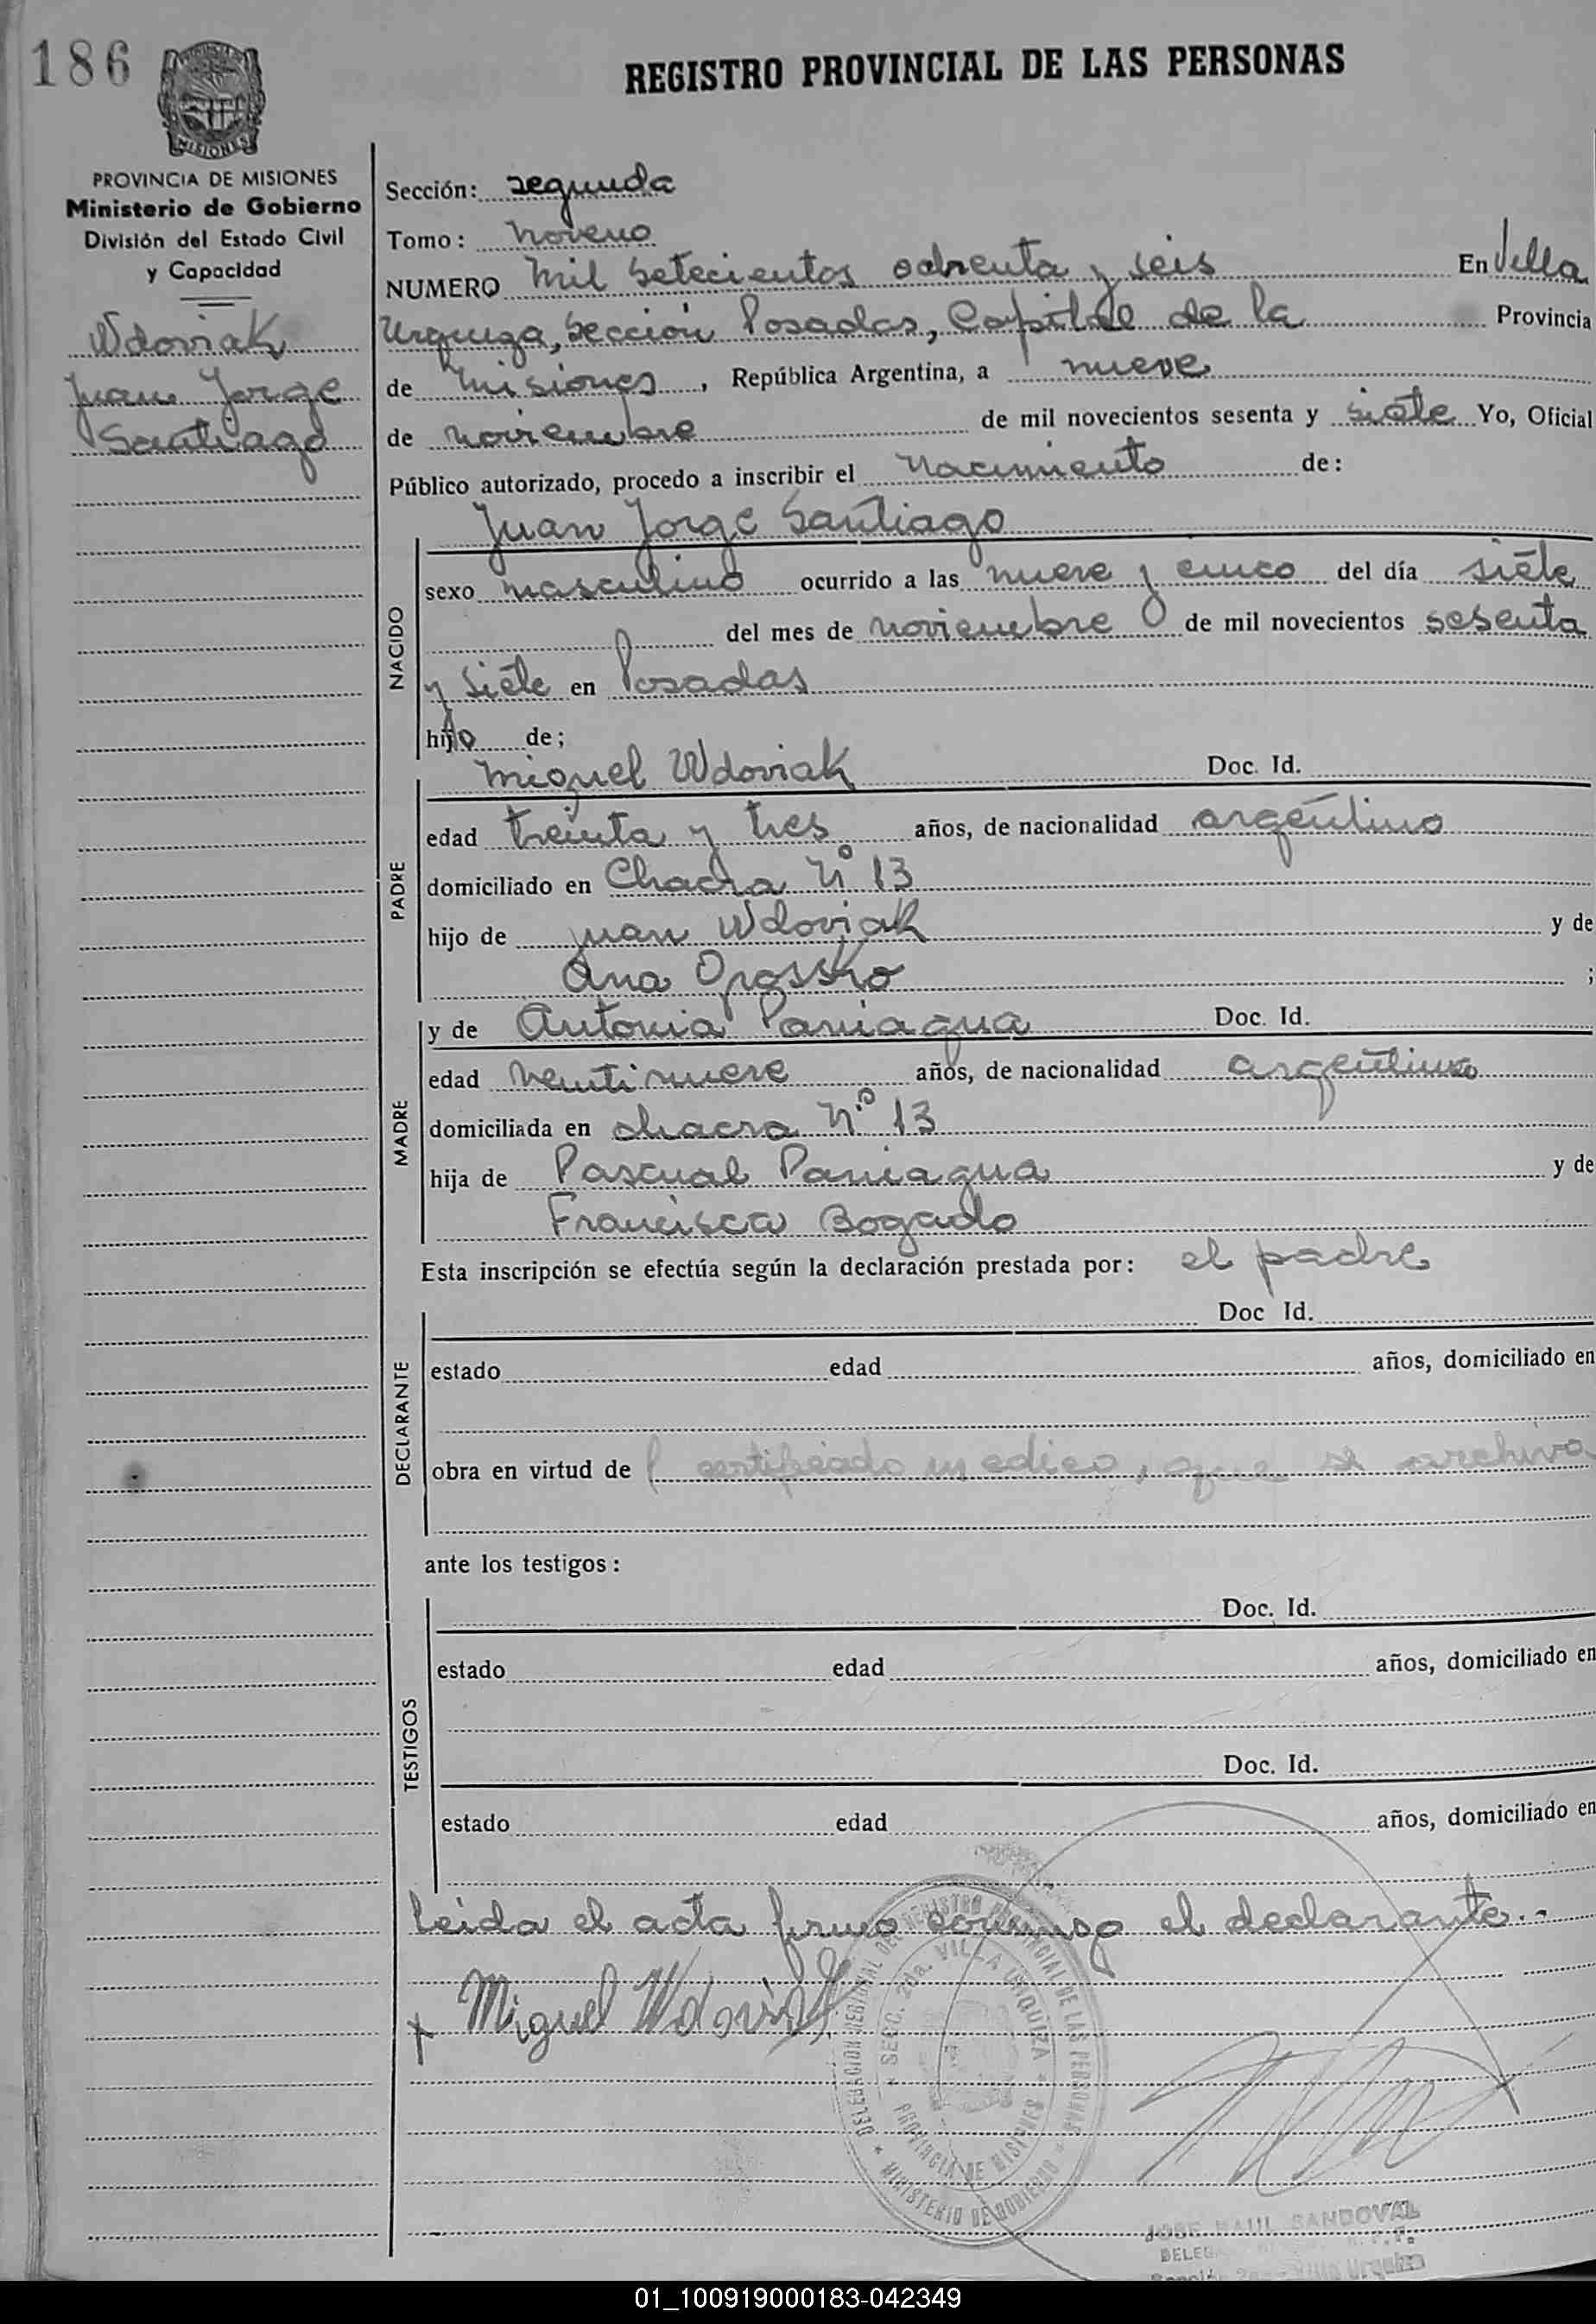 186
REGISTRO PROVINCIAL DE LAS PERSONAS
MISIONES
PROVINCIA DE MISIONES
Ministerio de Gobierno
División del Estado Civil
y Capacidad
Wdoviak
Juan Jorge
Santiago
Sección: segunda
Tomo: noveno
NUMERO mil setecientos ochenta y seis En Villa
Urquiza, Sección Posadas, Capital de la Provincia
de misiones, República Argentina, a nueve
de noviembre de mil novecientos sesenta y siete Yo, Oficial
Público autorizado, procedo a inscribir el nacimiento de:
Juan Jorge Santiago
NACIDO
sexo masculino ocurrido a las nueve y cinco del día siete
del mes de noviembre de mil novecientos sesenta
y siete en Posadas
hijo de;
Miguel Wdoviak Doc. Id.
PADRE
edad treinta y tres años, de nacionalidad argentino
domiciliado en Chacra Nº 13
hijo de Juan Wdoviak y de
Ana Opossko ;
MADRE
y de Antonia Paniagua Doc. Id.
edad veintinueve años, de nacionalidad argentina
domiciliada en chacra Nº 13
hija de Pascual Paniagua y de
Francisca Bogado
Esta inscripción se efectúa según la declaración prestada por: el padre
DECLARANTE
Doc Id.
estado edad años, domiciliado en
obra en virtud de l certificado medico, que se archiva
ante los testigos:
TESTIGOS
Doc. Id.
estado edad años, domiciliado en
Doc. Id.
estado edad años, domiciliado en
Leida el acta firma conmigo el declarante..
Miguel Wdoviak
DELEGACION REGIONAL DEL REGISTRO PROVINCIAL DE LAS PERSONAS
SECC. 2da. VILLA URQUIZA
PROVINCIA DE MISIONES
MINISTERIO DE GOBIERNO
JOSE RAUL SANDOVAL
Villa Urquiza
01_100919000183-042349